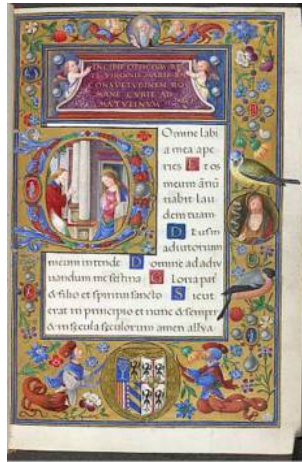 INCIPIT OFFICIUM BE
TE VIRGINIS MARIE SM
CONSVETVDINEM RO
MANE CVRIE AD
MATVTINVM
Domine labi
a mea ape
ries Et os
meum ānū
tiabit lau
dem tuam
Deus in
adiutorium
meum intende Domine ad adiu
uandum me festina Gloria pat̄
& filio et spiritui sancto Sicut
erat in principio et nunc & semper
& in secula seculorum amen allya